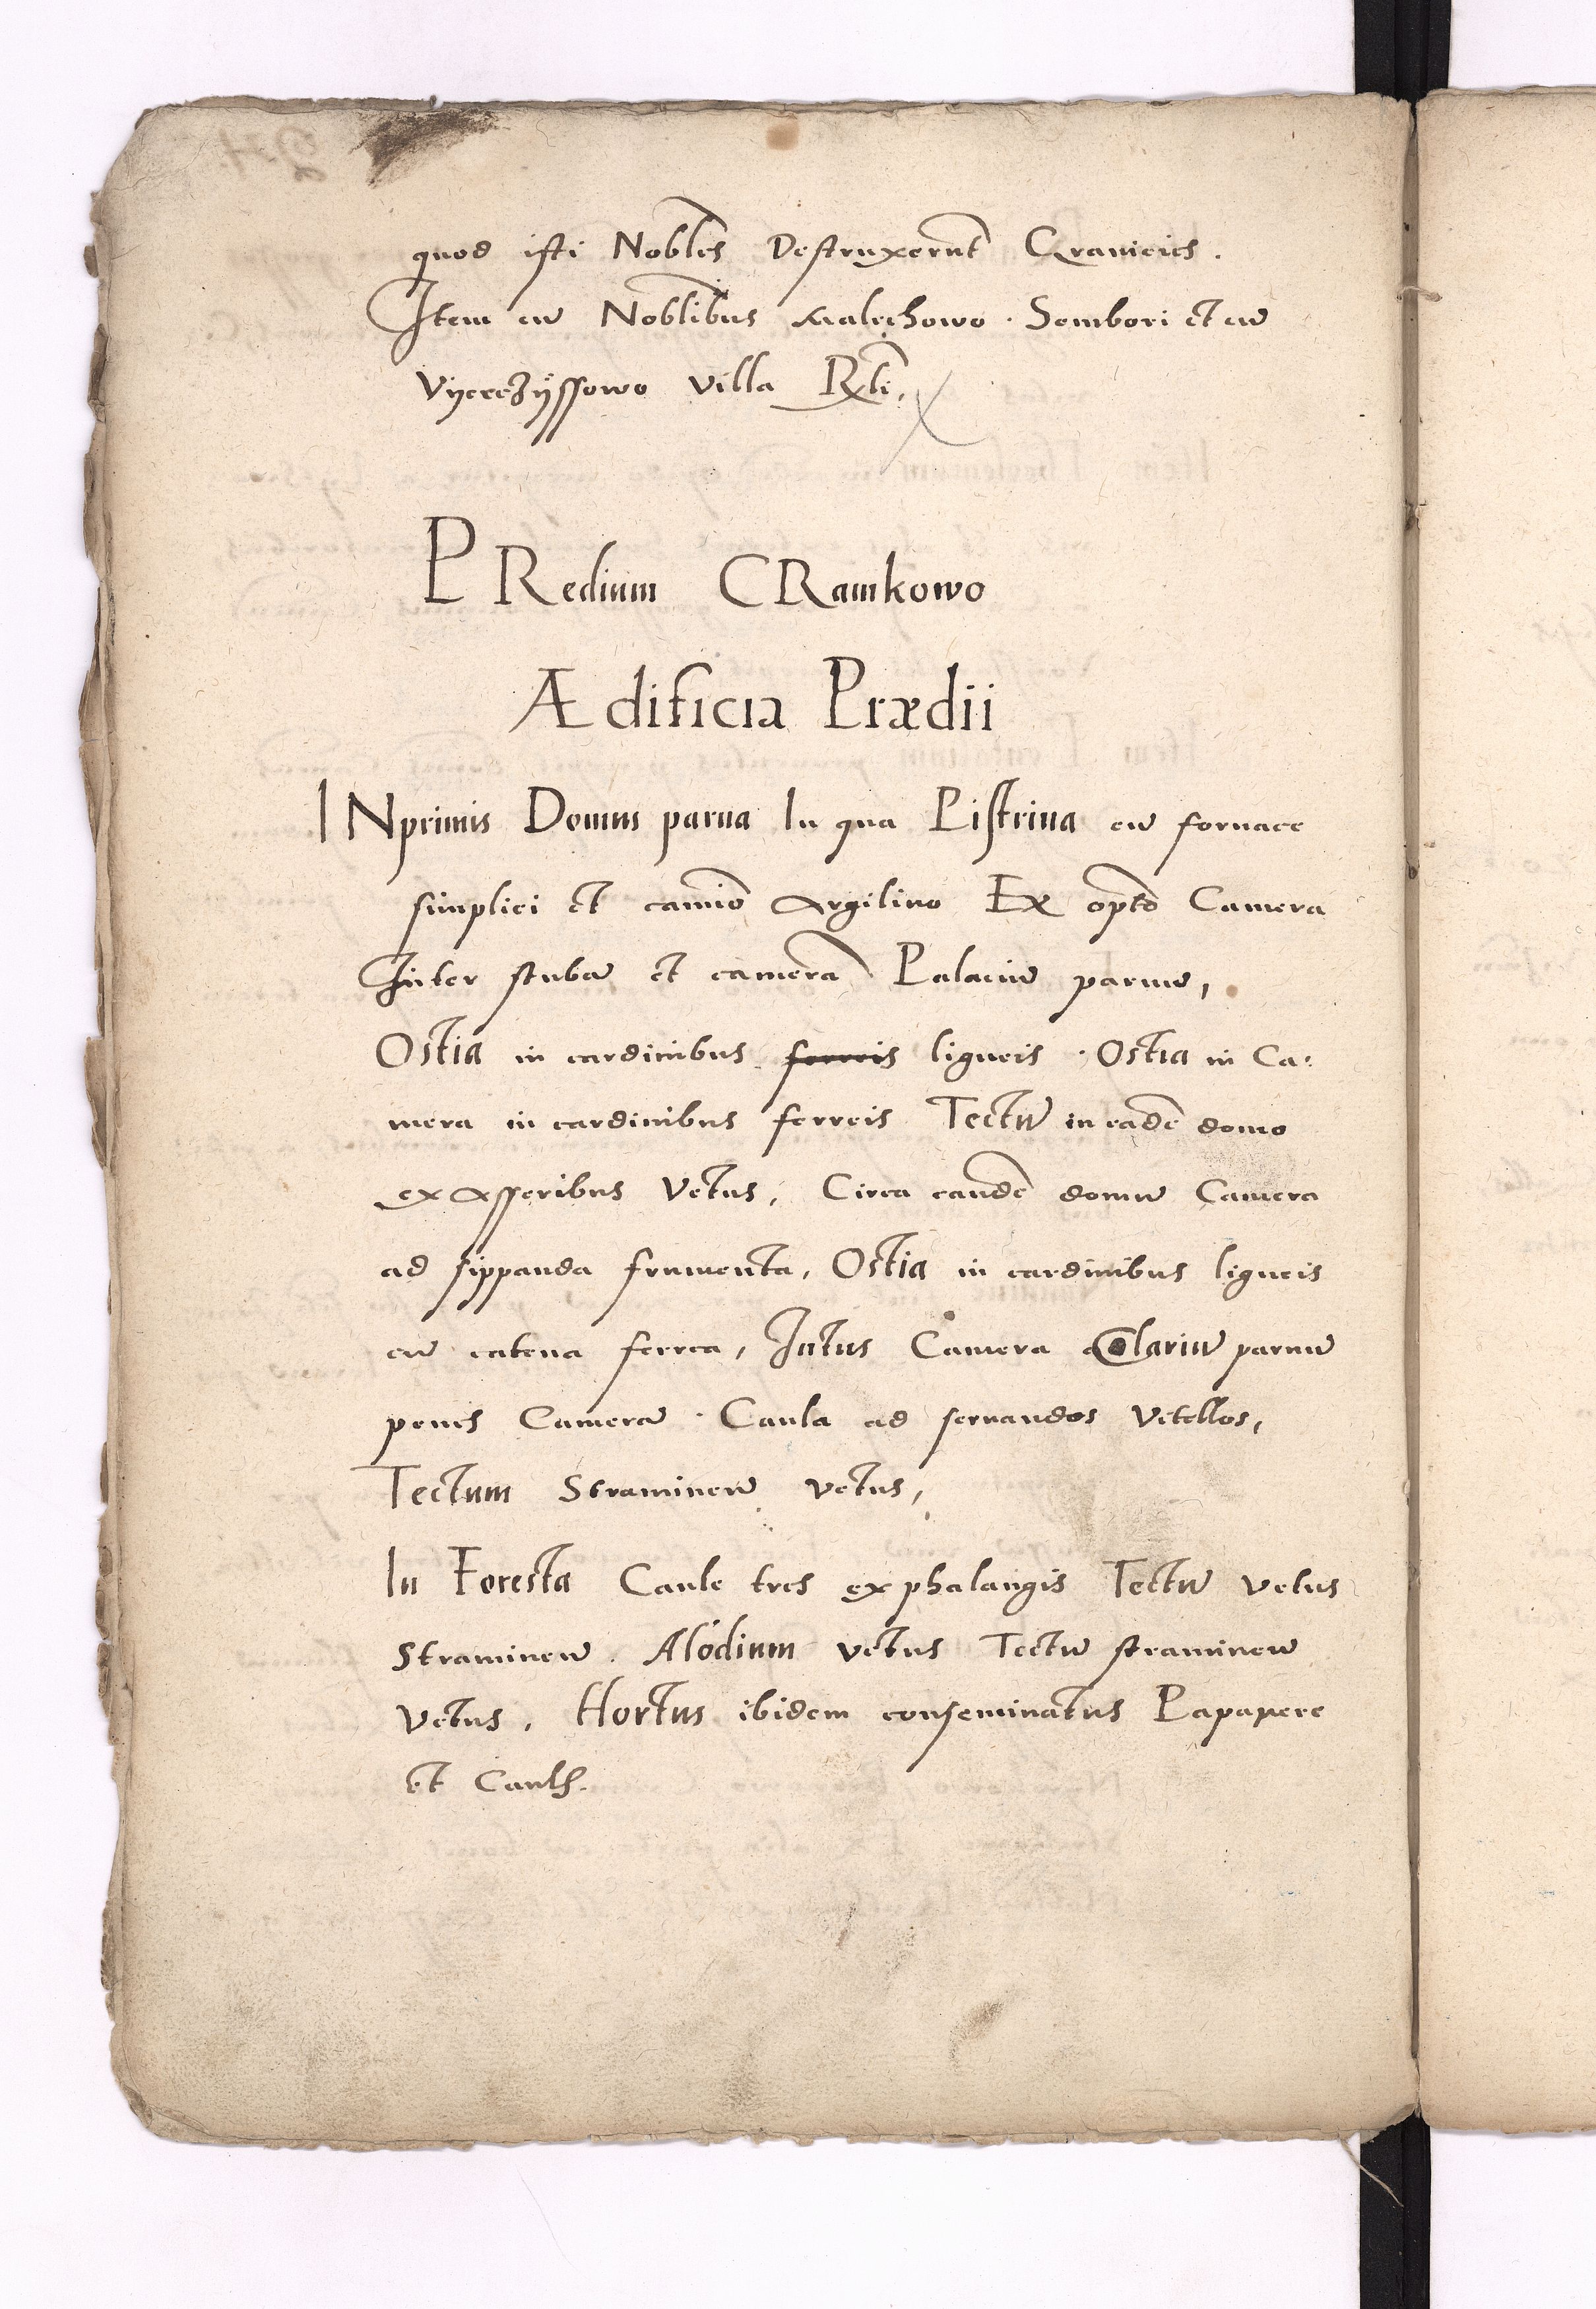 quod isti Nobles Destruxerunt Granicies.
Item cū Noblibus Malechowo. Sombori et cū
Vyccezÿssowo villa Rxli.
PRedium CRamkowo
Ædificia Prædii
INprimis Domus parua In qua Pistrina cū fornace
simplici et camiō Argilino Ex opto Camera
Inter stubā et camerā Palaciū paruū,
Ostia in cardinibus ferreis ligneis. Ostia in Ca:
mera in cardinibus ferreis Tectū in eadē domo
ex Asseribus Vetus, Circa eandē domū Camera
ad sippanda frumenta, Ostia in cardinibus ligneis
cū catena ferrea, Intus Camera Celariū paruū
penes Camerā. Caula ad seruandos Vitellos,
Tectum Stramineū vetus,
In Foresta Caule tres ex phalangis Tectū vetus
Stramineū. Alodium vetus Tectū stramineū
Vetus, Hortus ibidem conseminatus Papauere
et Caulib.